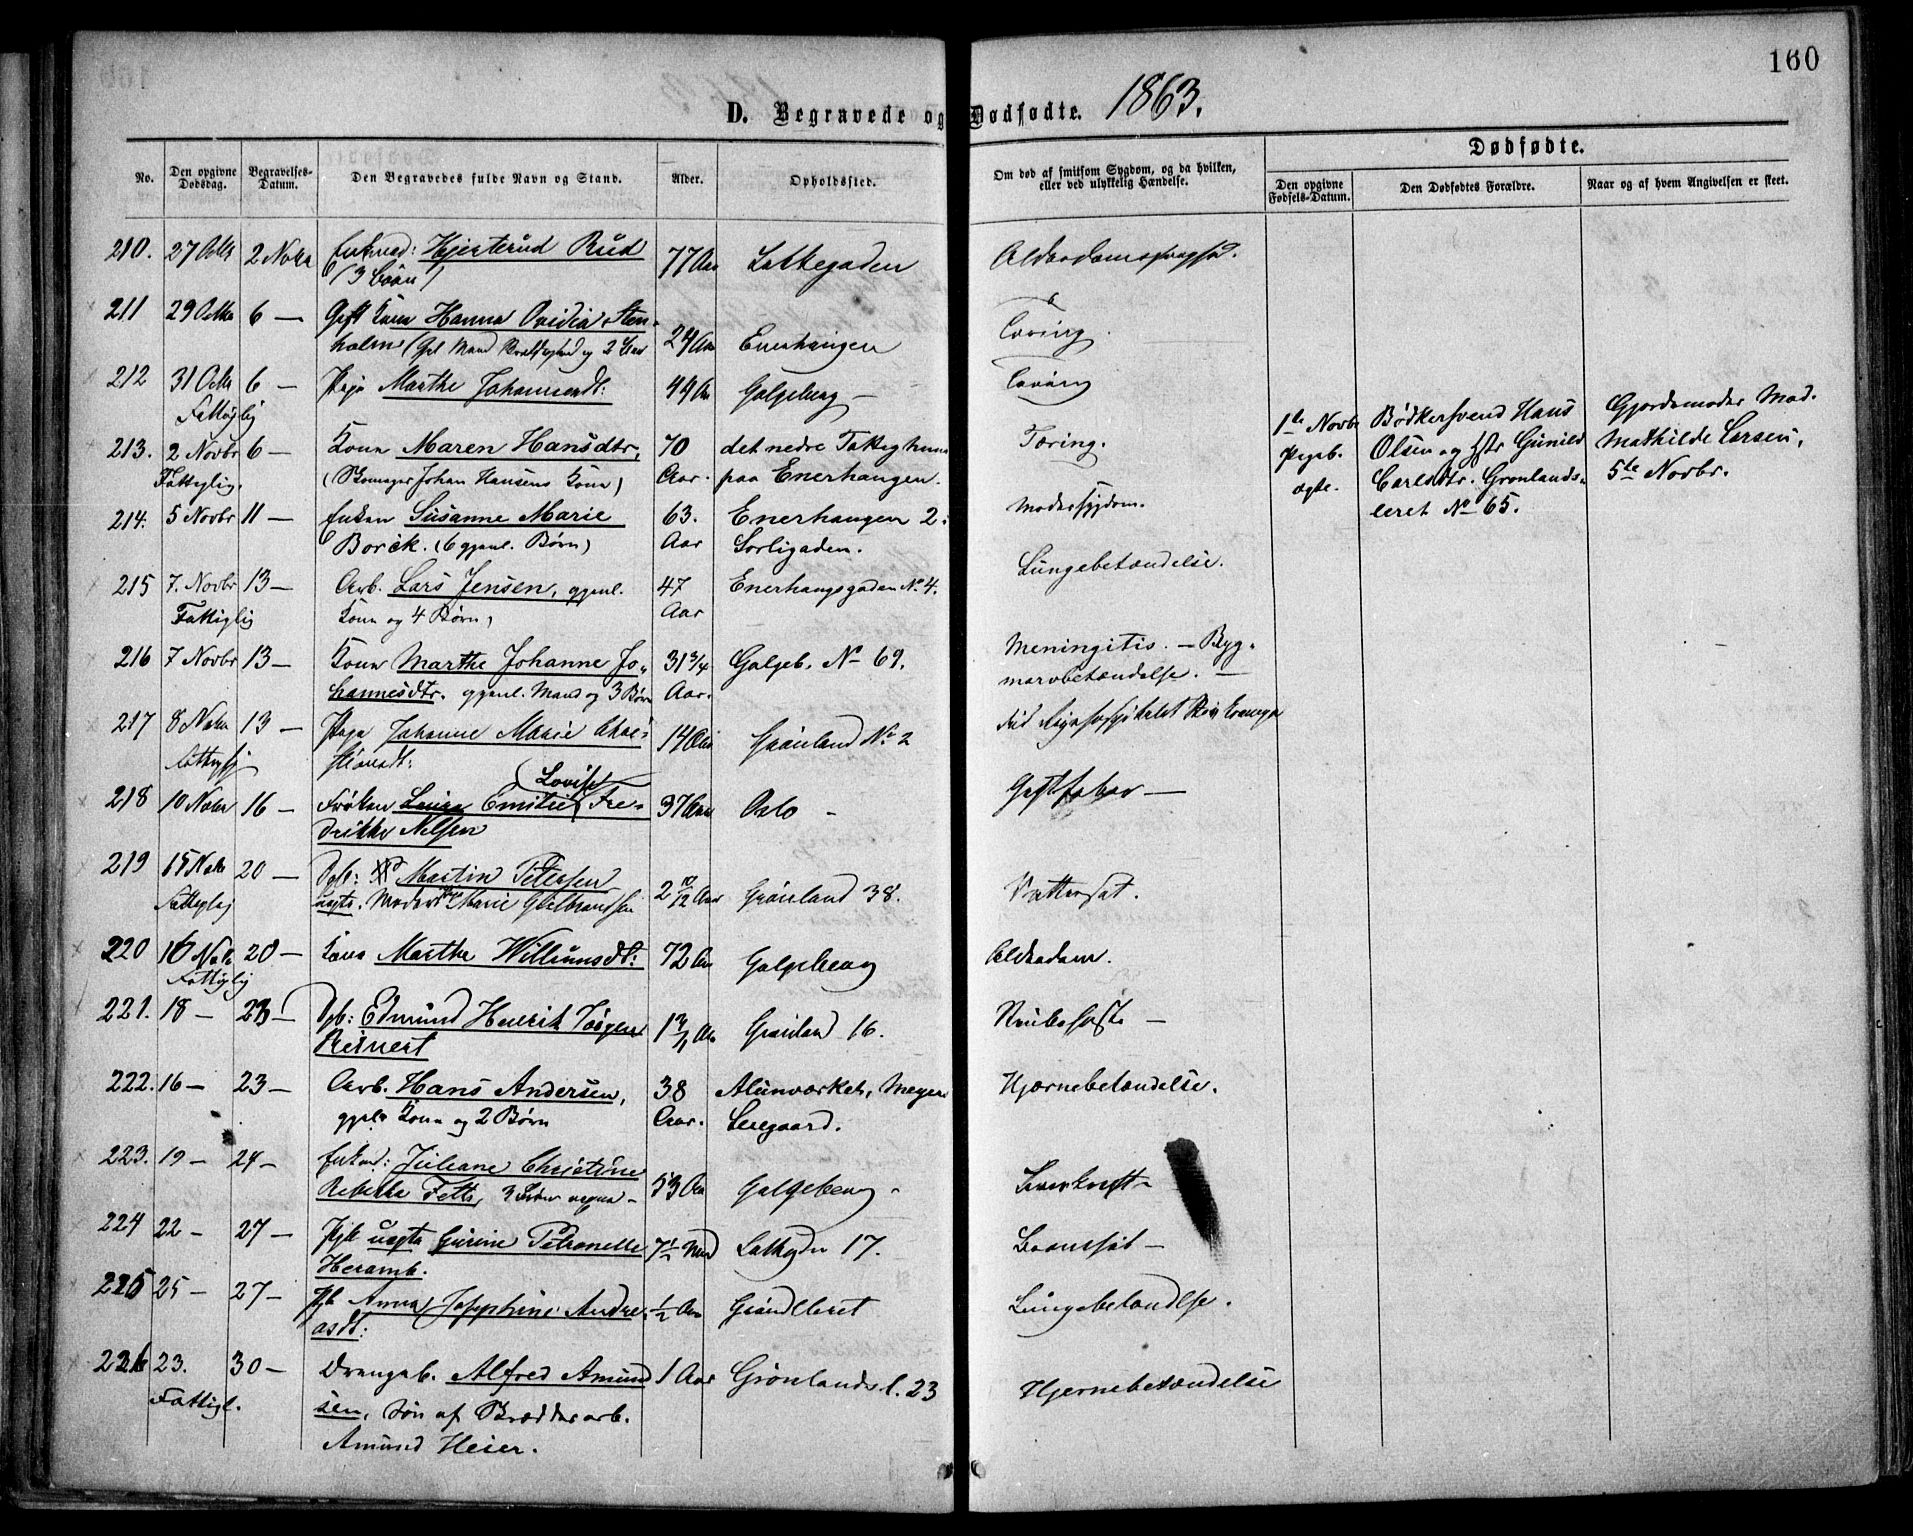 160
D. Begravede og Dødfødte. 1863.
No.
Den opgivne Dødsdag.
Begravelses-Datum.
Den Begravedes fulde Navn og Stand.
Alder.
Opholdssted.
Om død af smitsom Sygdom, og da hvilken, eller ved ulykkelig Hændelse.
Dødfødte.
Den opgivne Fødsels-Datum.
Den Dødfødtes Forældre.
Naar og af hvem Angivelsen er skeet.
210. 27 Octbr 2 Novbr Enkemd: Hjerterud Rud 77 Aar Lakkegaden
(3 Børn)
211 29 Octbr 6 — Gift Kone Hanna Ovidia Sten- 24 Aar Enerhaugen Tæring
holm
212 31 Octbr 6 — Pige Marthe Johannesdt: 44 Aar Galgeberg — Tæring
Fattiglig
213. 2 Novbr 6 — Kone Maren Hansdtr, 70 det nedre Fattighuus Tæring.
Fattiglig. (Johan Hansens Kone) Aar. paa Enerhaugen.
214. 5 Novbr 11 — Enken Susanne Marie 63. Enerhaugen 2 Modersygdom.
Borck. (6 gjenl. Børn) Aar Sorligaden.
215 7. Novbr 13 — Arb. Lars Jensen, gjenl. 47 Enerhaugsgaden No 4. Lungebetændelse.
Fattiglig Kone og 4 Børn) Aar
216 7 Novbr 13 — Kone Marthe Johanne Jo- 31 3/4 Galgeb. No 69. Meningitis. — Ryg-
hannesdtr. gjenl. Mand og 3 Børn Aar. marvbetændelse. —
217 8 Novbr 13 — Pige Johanne Marie Chri- 14 Aar Grønland No 2
Fattiglig stiansdt:
218 10 Novbr 16 — Frøken Laura Emilie Lovise Fre- 37 Aar Oslo - Gastfeber —
drikke Nelsen
219 15 Novbr 20 — Dgb: Martin Petersen 2 10/12 Aar Grønland 38. Vattersot.
Fattiglig uægte. Moder Marie Gulbrandsen
220 16 Novbr 20 — Kone Marthe Willumsdt: 72 Aar Galgeberg Alderdom.
Fattiglig
221. 18 — 23 — Dgb: Edmund Henrik Jørgen 1 Aar Grønland 16.
Reinert
222. 16 — 23 — Arb. Hans Andersen, 38 Alunværket, Meyer Hjernebetændelse.
gjenl. Kone og 2 Børn Aar. Leregaard.
223. 19 — 24 — Enkemd: Juliane Christine 53 Aar Galgeberg -
Rebekka Fette, 3
224 22 — 27 — Pigeb uægte Gurine Petronelle 7 1/2 Md Lakkegden 17.
Heramb.
225 25 — 27 — Pgb Anna Josephine Andre- 1/2 Aar Grønlleret Lungebetændlse.
asdt:
226 23. 30 — Drengeb. Alfred Amund 1 Aar Grønlandsl. 23 Hjernebetændelse
Fattigl. sen, Søn af Brædderarb.
Amund Heier.
1ste Novbr Bødkersvend Hans Gjordemoder Mad.
Pigeb. Olsen og Hstr Gunild Mathilde Larsen,
ægte. Carlsdtr. Grønlands- 5te Novbr.
leret No 65.